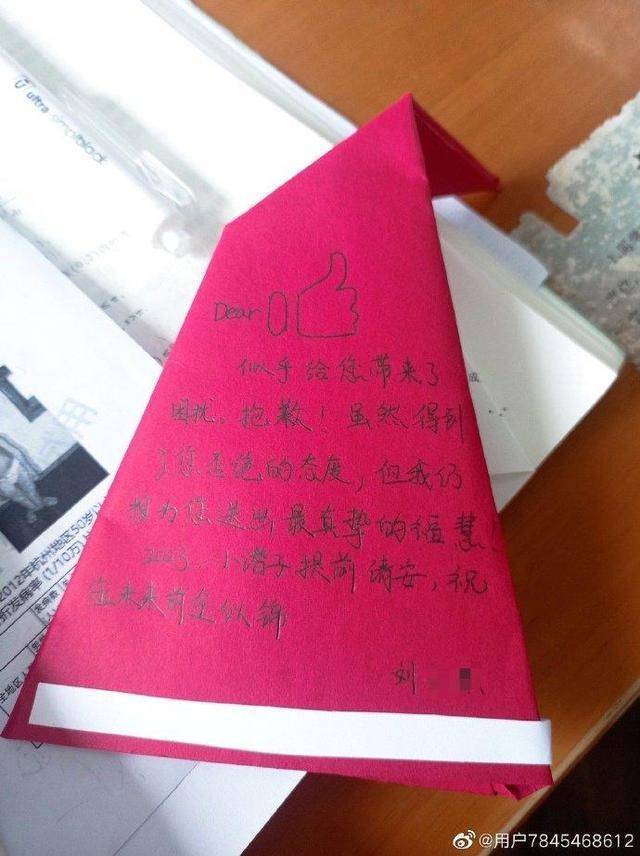 ultra simplified
Dear
似乎给您带来了
困扰。抱歉！虽然得到
了您拒绝的态度，但我仍
想为您送出最真挚的福慧
2023. 小潜子提前请安，祝
您未来前途似锦
刘
2012年杭州地区50岁以
折发病率（1/10万）
成
@用户7845468612